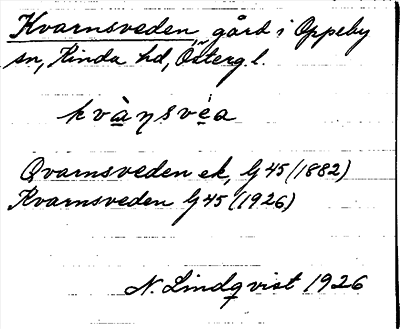 Kvarnsveden, gård i Oppeby
sn, Kinda hd, Österg.l.
kvàŋsvéa
Qvarnsveden ek, G45 (1882)
Kvarnsveden G45 (1926)
N. Lindqvist 1926